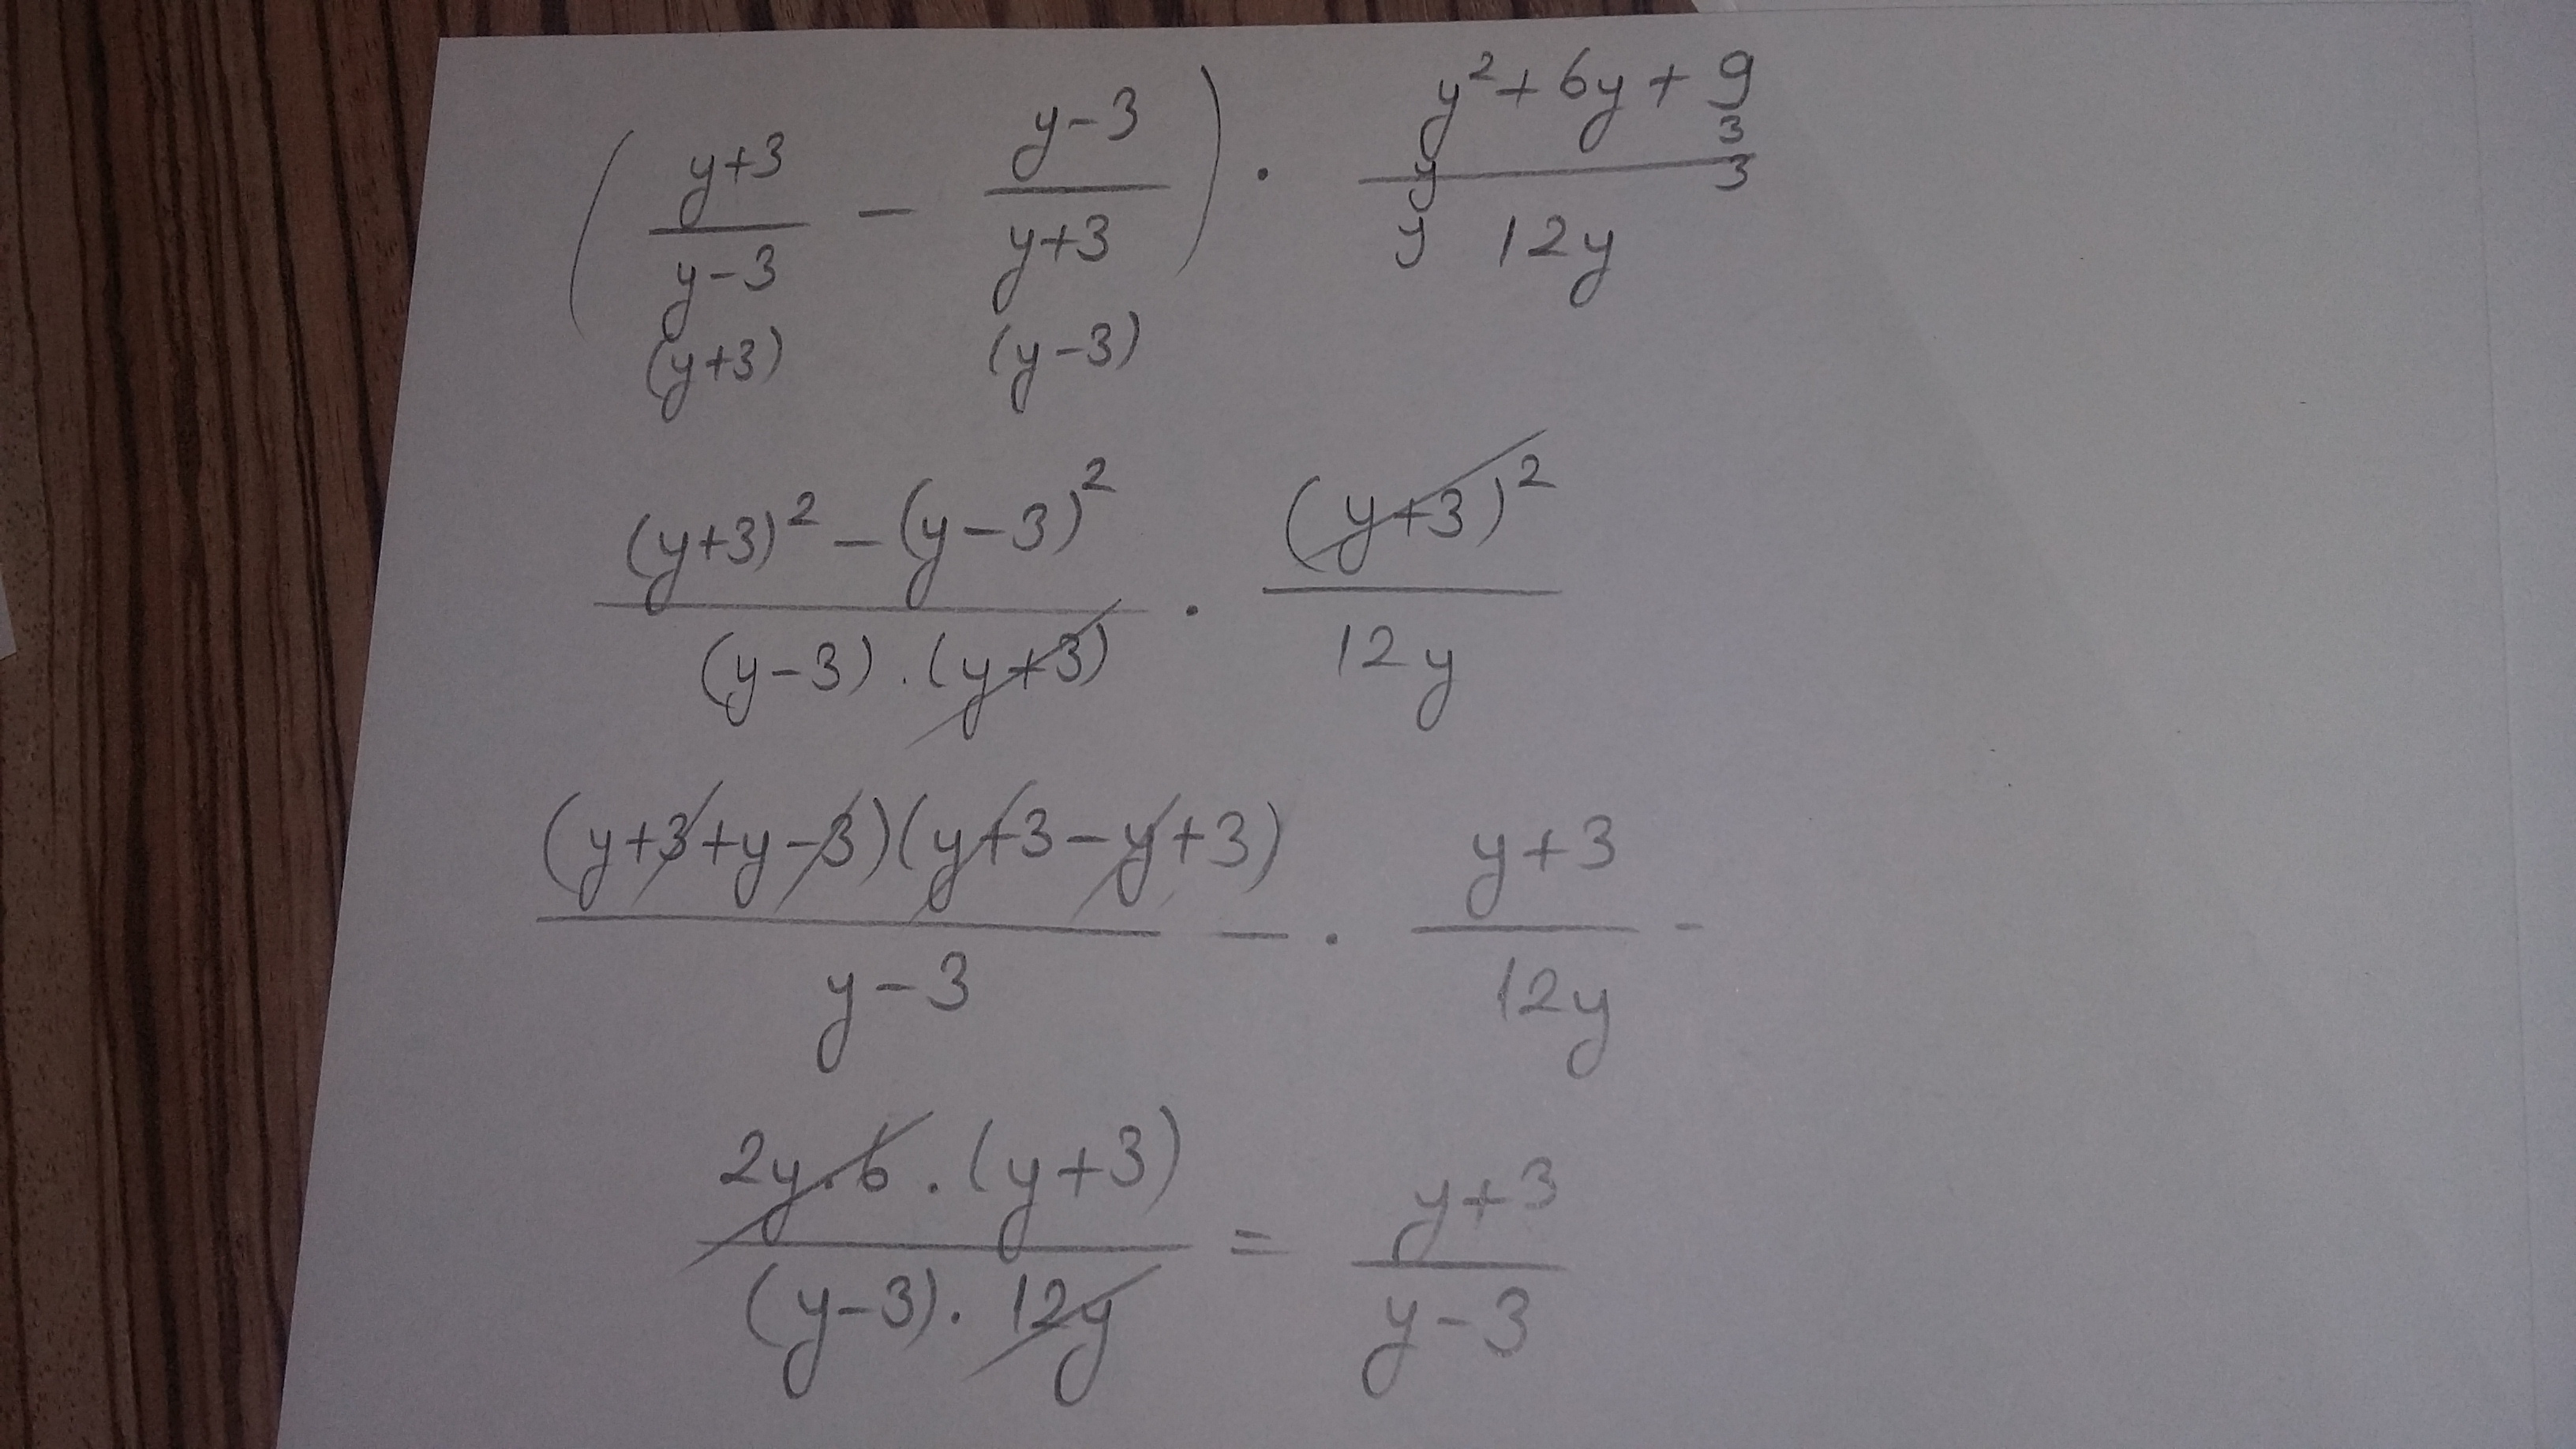 ( (y+3)/(y-3) - (y-3)/(y+3) ) · (y²+6y+9)/(12y)
(y+3) (y-3) y 3 y 3
((y+3)² - (y-3)²)/((y-3).(y+3)) · (y+3)²/(12y)
((y+3+y-3)(y+3-y+3))/(y-3) - · (y+3)/(12y) -
(2y.6.(y+3))/((y-3).12y) = (y+3)/(y-3)